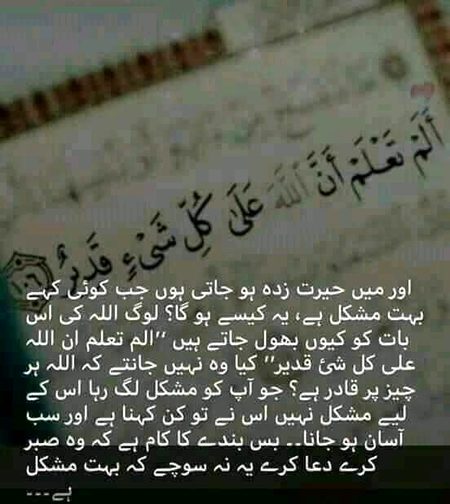 أَلَمْ تَعْلَمْ أَنَّ اللَّهَ عَلَىٰ كُلِّ شَيْءٍ قَدِيرٌ ۝١٠٦
اور میں حیرت زدہ ہو جاتی ہوں جب کوئی کہے
بہت مشکل ہے، یہ کیسے ہو گا؟ لوگ اللہ کی اس
بات کو کیوں بھول جاتے ہیں ,,الم تعلم ان اللہ
علی کل شئ قدیر,, کیا وہ نہیں جانتے کہ اللہ ہر
چیز پر قادر ہے؟ جو آپ کو مشکل لگ رہا اس کے
لیے مشکل نہیں اس نے تو کن کہنا ہے اور سب
آسان ہو جانا۔۔ بس بندے کا کام ہے کہ وہ صبر
کرے دعا کرے یہ نہ سوچے کہ بہت مشکل
ہے۔۔۔